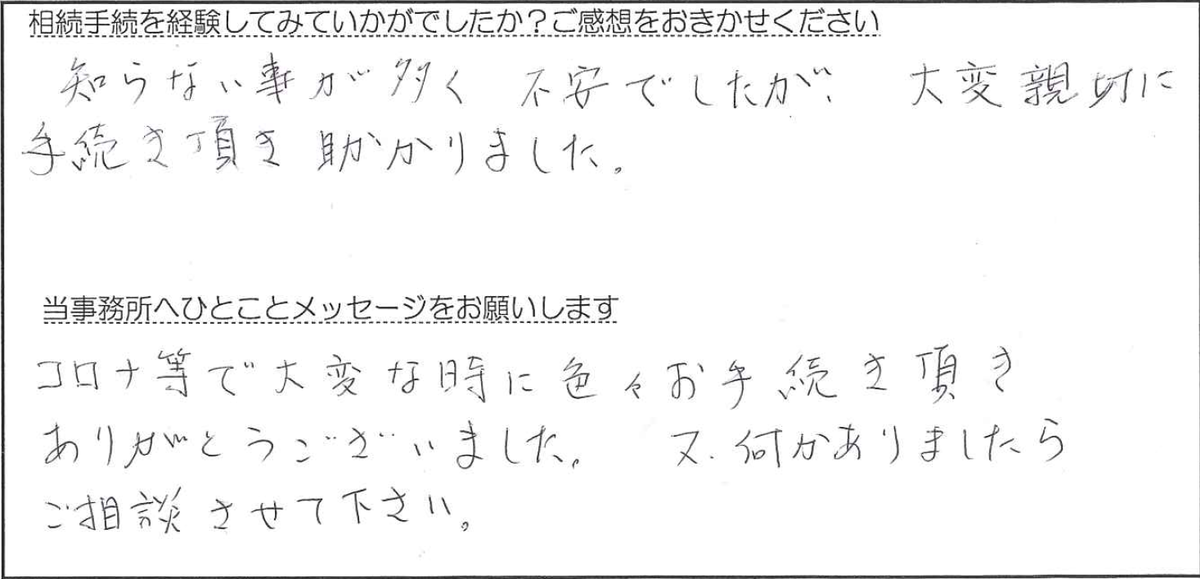 相続手続を経験してみていかがでしたか？ご感想をおきかせください
知らない事が多く 不安でしたが、 大変親切に
手続き頂き 助かりました。
当事務所へひとことメッセージをお願いします
コロナ等で大変な時に色々お手続き頂き
ありがとうございました。 又、何かありましたら
ご相談させて下さい。